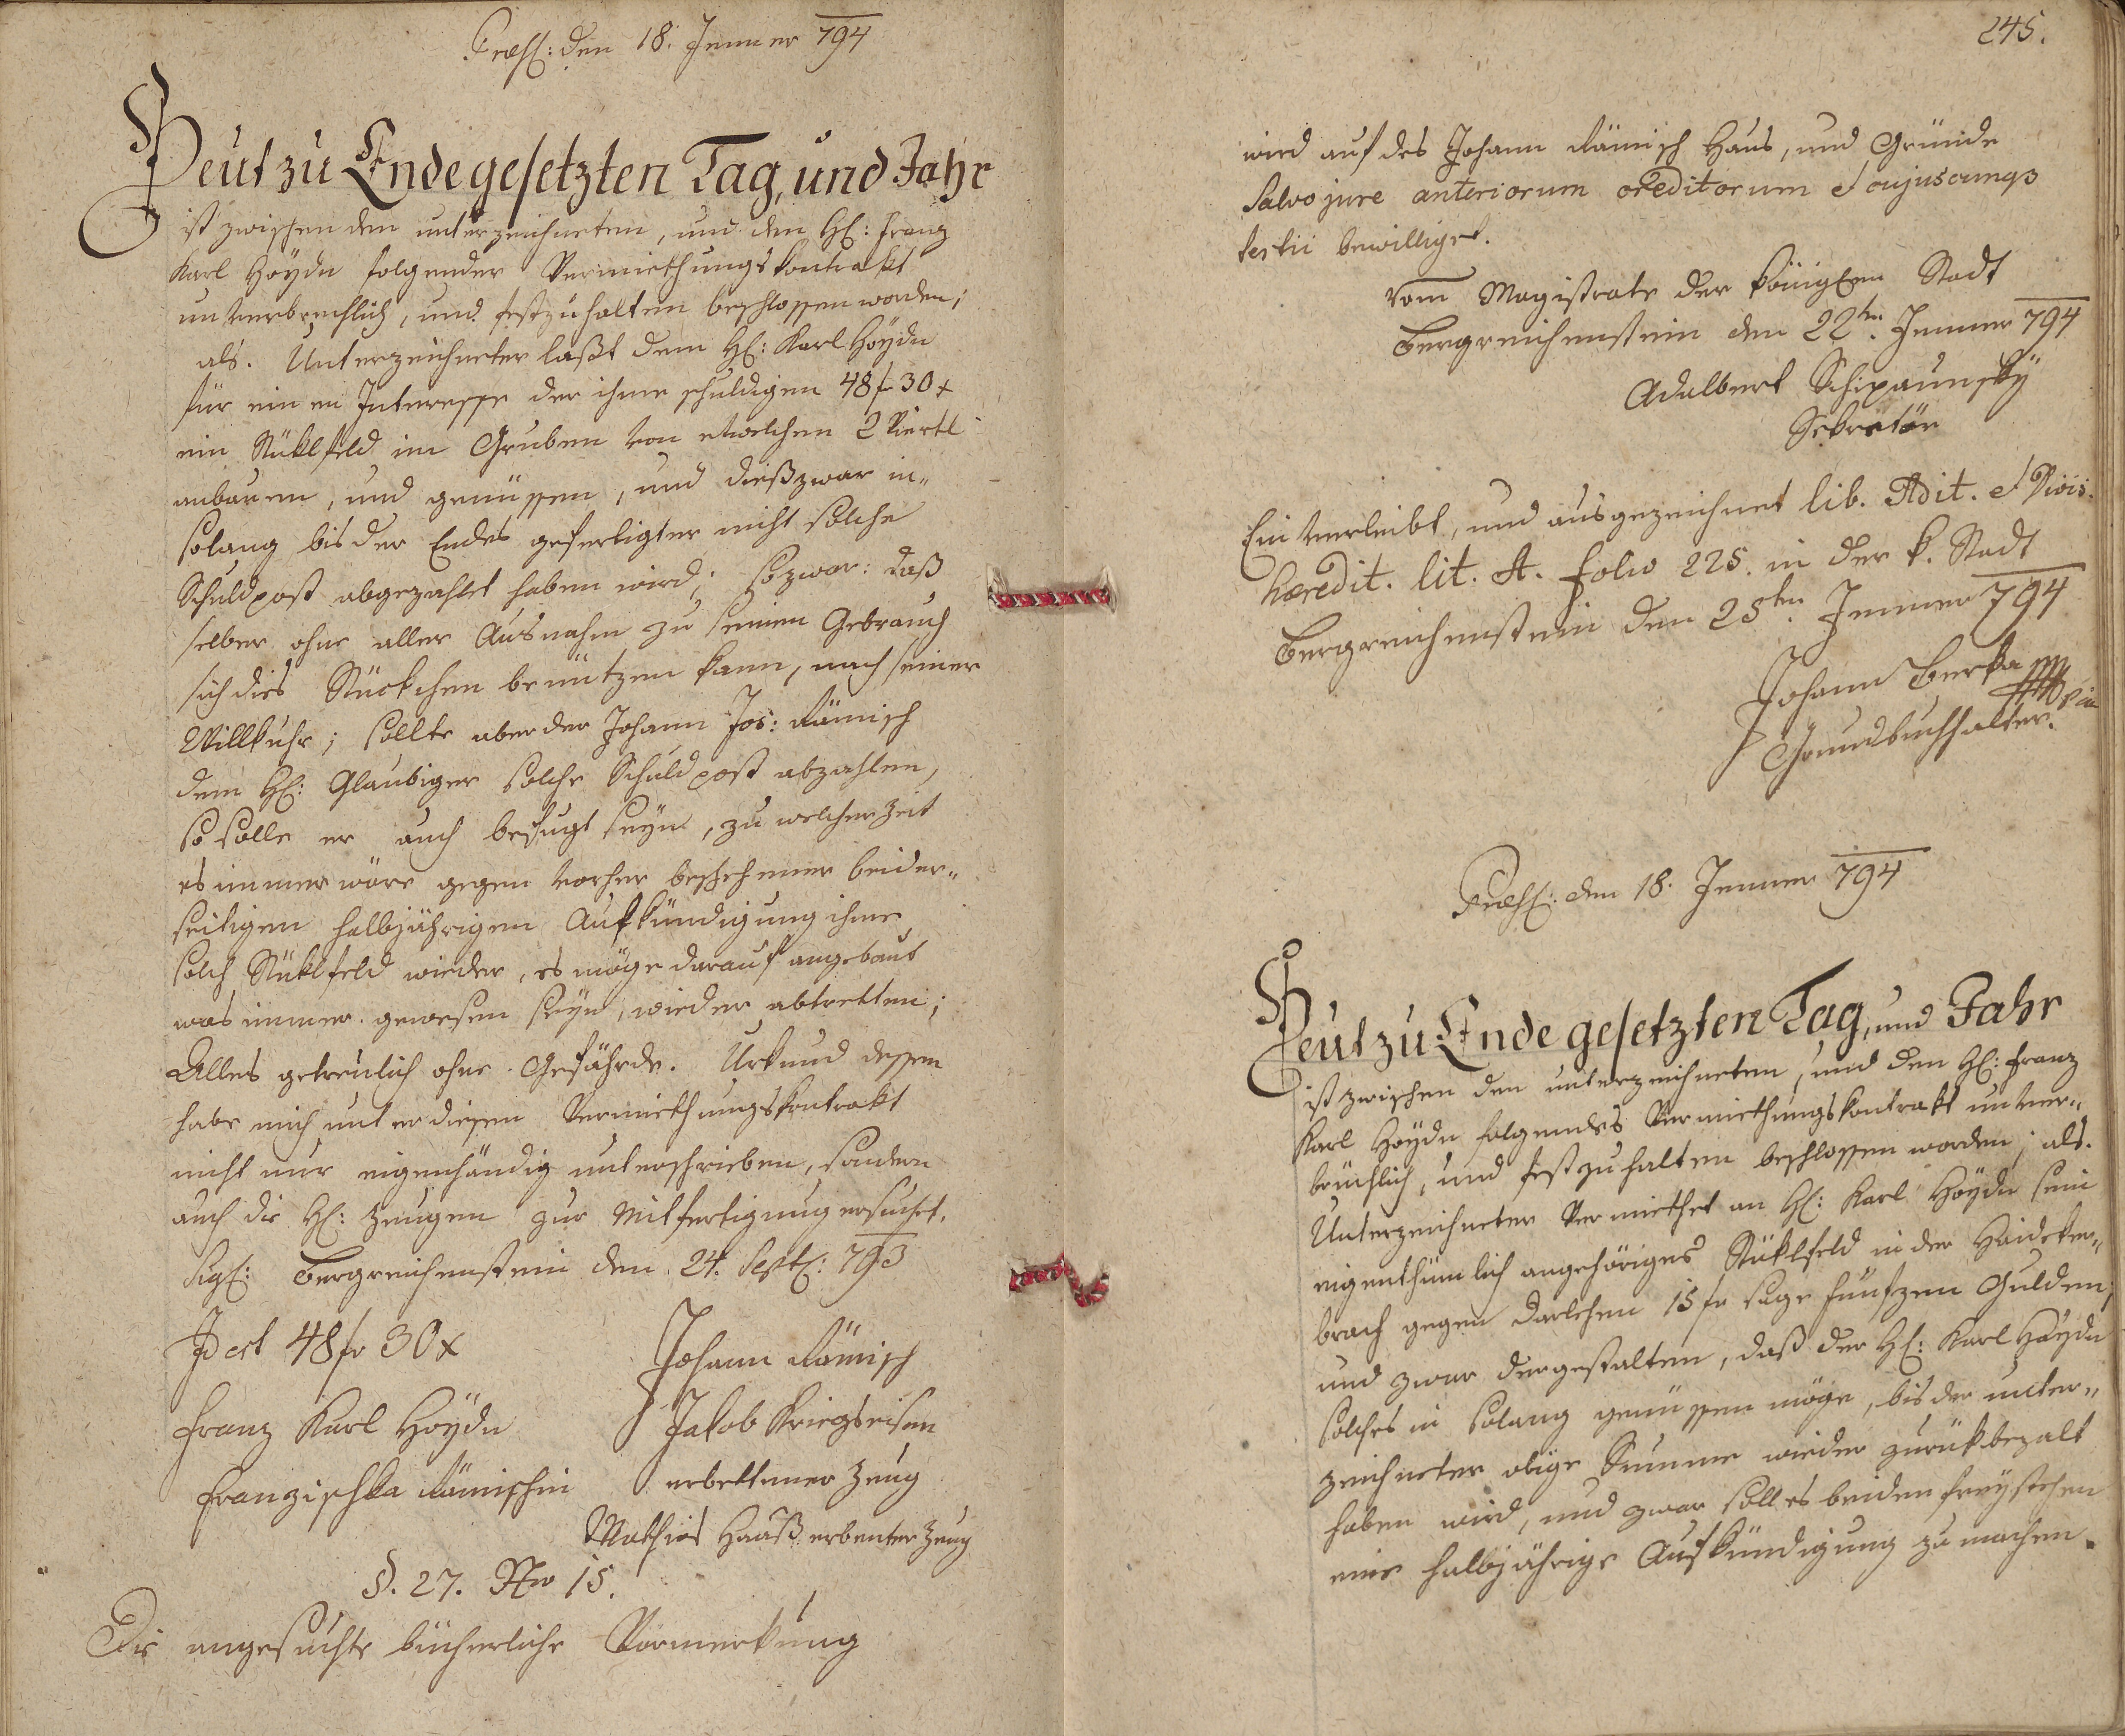 Præs: den 18. Jenner 794
Heut zu Ende gesetzten Tag, und Jahr
ist zwischen dem unterzeichneten, und dem H: Franz
Karl Hoydn folgender Vermiethungskontrakt
unverbrechlich, und festzuhalten beschlossen worden;
als. Unterzeichneter laßt dem H: Karl Hoydn
für einen Interesse der ihme schuldigen 48 fr 30 x
ein Stüklfeld im Gruben von etwelchen 2 Viertl
anbauen, und genüssen, und dieß zwar in„
solang bis der Endes gefertigter nicht solche
Schuldpost abgezahlet haben wird; so zwar: daß
selber ohne aller Ausnahm zu seinen Gebrauch
sich dies Stückchen benützen kann, nach seiner
Willkuhr; sollte aber der Johann Jos: Römisch
dem H: Glaubiger solche Schuldpost abzahlen,
so solle er auch befugt seyn, zu welcher Zeit
es immer wäre gegen vorher beschehener beider„
seitigen halbjährigen Aufkündigung ihme
solch Stüklfeld wieder, es möge darauf angebaut
was immer gewesen seyn, wieder abtretten;
Alles getreülich ohne Gefährde. Urkund dessen
habe mich unter diesen Vermiethungskontrakt
nicht nur eigenhändig unterschrieben, sondern
auch die H: Zeugen zur Mitfertigung ersuchet.
Sigl: Bergreichenstein den 24. Sept: 793
Id est 48 fr 30 x
Johann Römisch
Franz Karl Hoydn
Jakob Kriegseisen
Franzischka Römischin
erbettener Zeug
Mathias Haaß erbenter Zeug
§. 27. Nro 15.
Die angesuchte bücherliche Vormerkung
245.
wird auf des Johann Römisch Haus, und Gründe
Salvo jure anteriorum creditorum et cujuscunqs
tertii bewilliget.
Vom Magistrate der königlen Stadt
Bergreichenstein den 22ten Jenner 794
Adalbert Schipaunsky
Sekretär
Einverleibt, und ausgezeichnet lib. Adit. et Divis.
hæredit. lit. A. folio 225. in der k. Stadt
Bergreichenstein den 25ten Jenner 794
Johann Berka
Grundbuchhalter.
Præs: den 18. Jenner 794
Heut zu Ende gesetzten Tag, und Jahr
ist zwischen den unterzeichneten, und den H: Franz
Karl Hoydn folgendes Vermiethungskontrakt unver„
brüchlich, und festzuhalten beschlossen worden; als.
Unterzeichneter Vermiethet an H: Karl Hoydn sein
eigenthümlich angehöriges Stüklfeld in der Haideker„
brach gegen Darlehen 15 fr sage fünfzen Gulden;
und zwar dergestalten, daß der H: Karl Haydn
solches in solang genüssen möge, bis der unter„
zeichneter obige Summe wieder zurükbezalt
haben wird, und zwar soll es beiden freystehen
eine halbjährige Aufkündigung zu machen.